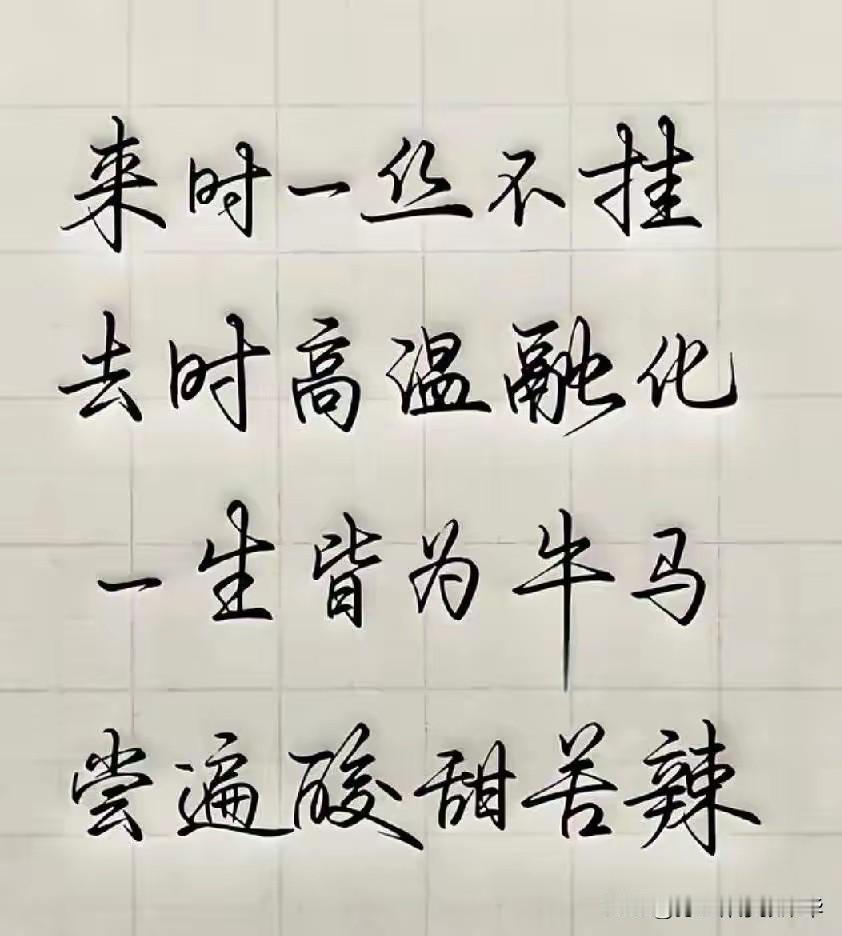 来时一丝不挂
去时高温融化
一生皆为牛马
尝遍酸甜苦辣